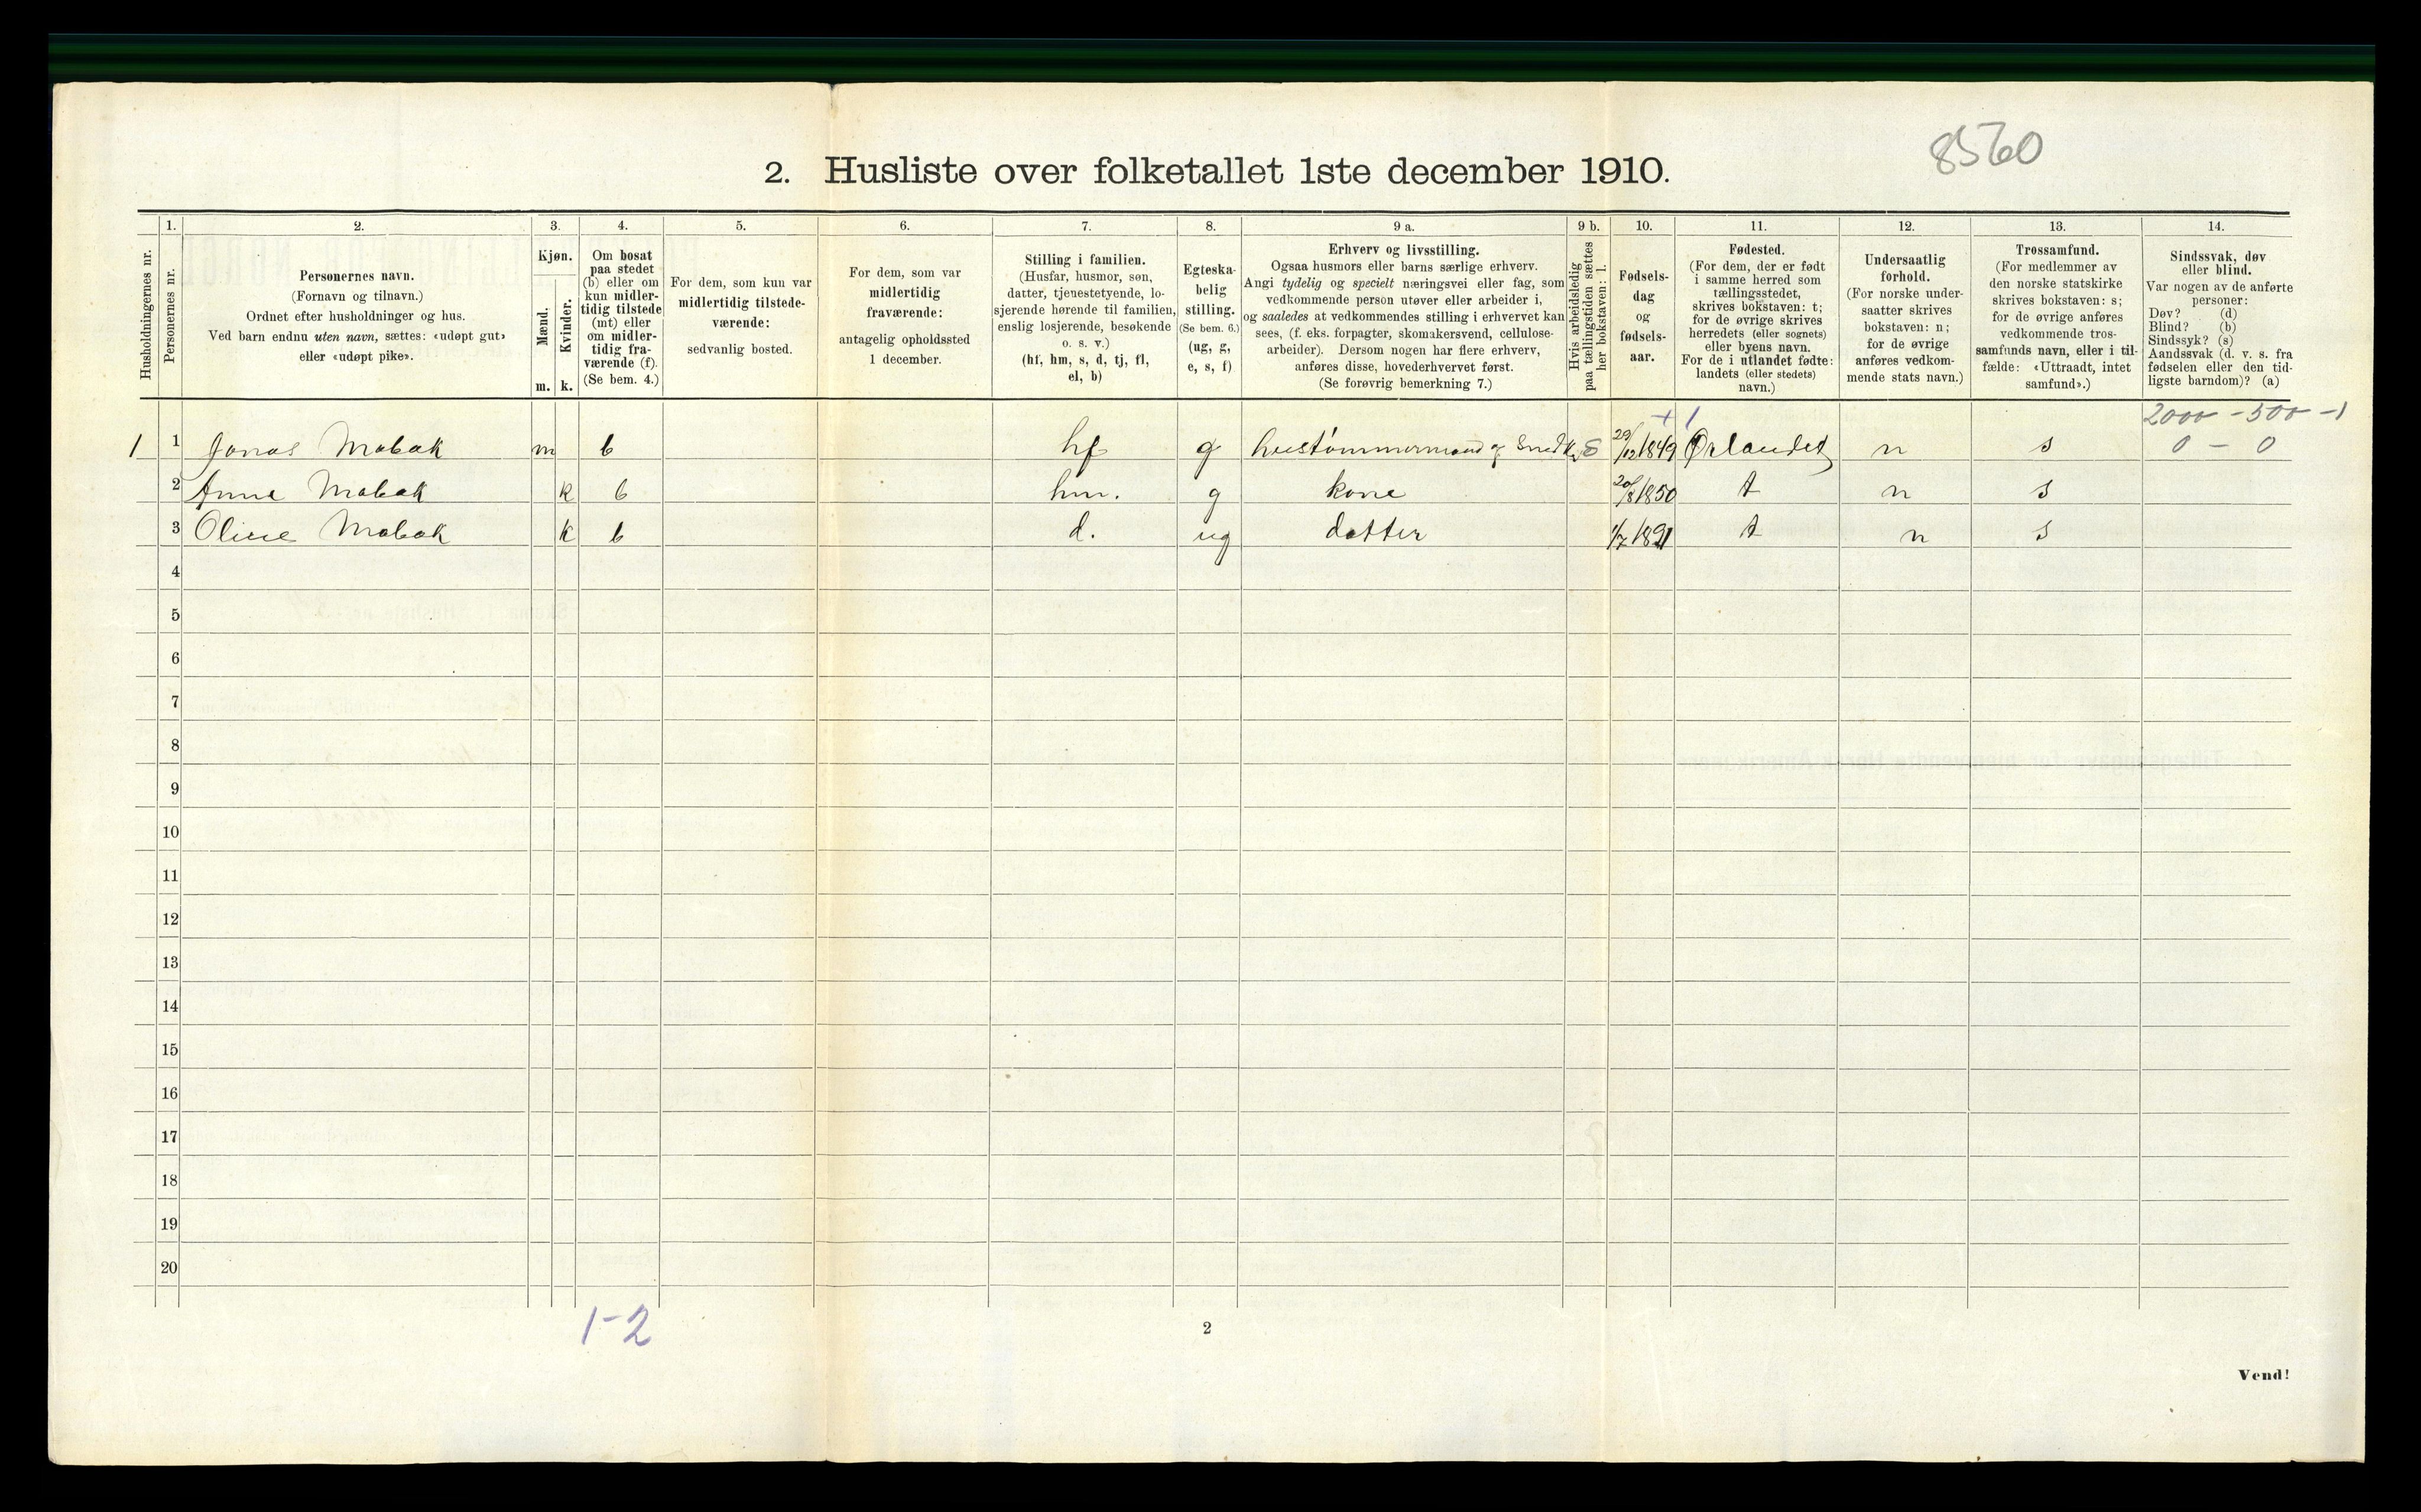 8560
2. Husliste over folketallet 1ste december 1910.
Husholdningernes nr.
1.
Personernes nr.
2.
Personernes navn.
(Fornavn og tilnavn.)
Ordnet efter husholdninger og hus.
Ved barn endnu uten navn, sættes: «udøpt gut»
eller «udøpt pike».
3.
Kjøn.
Mænd.
m.
Kvinder.
k.
4.
Om bosat
paa stedet
(b) eller om
kun midler-
tidig tilstede
(mt) eller
om midler-
tidig fra-
værende (f).
(Se bem. 4.)
5.
For dem, som kun var
midlertidig tilstede-
værende:
sedvanlig bosted.
6.
For dem, som var
midlertidig
fraværende:
antagelig opholdssted
1 december.
7.
Stilling i familien.
(Husfar, husmor, søn,
datter, tjenestetyende, lo-
sjerende hørende til familien,
enslig losjerende, besøkende
o. s. v.)
(hf, hm, s, d, tj, fl,
el, b)
8.
Egteska-
belig
stilling.
(Se bem. 6.)
(ug, g,
e, s, f)
9 a.
Erhverv og livsstilling.
Ogsaa husmors eller barns særlige erhverv.
Angi tydelig og specielt næringsvei eller fag, som
vedkommende person utøver eller arbeider i,
og saaledes at vedkommendes stilling i erhvervet kan
sees, (f. eks. forpagter, skomakersvend, cellulose-
arbeider). Dersom nogen har flere erhverv,
anføres disse, hovederhvervet først.
(Se forøvrig bemerkning 7.)
9 b.
Hvis arbeidsledig
paa tællingstiden sættes
her bokstaven: l.
10.
Fødsels-
dag
og
fødsels-
aar.
11.
Fødested.
(For dem, der er født
i samme herred som
tællingsstedet,
skrives bokstaven: t;
for de øvrige skrives
herredets (eller sognets)
eller byens navn.
For de i utlandet fødte:
landets (eller stedets)
navn.)
12.
Undersaatlig
forhold.
(For norske under-
saatter skrives
bokstaven: n;
for de øvrige
anføres vedkom-
mende stats navn.)
13.
Trossamfund.
(For medlemmer av
den norske statskirke
skrives bokstaven: s;
for de øvrige anføres
vedkommende tros-
samfunds navn, eller i til-
fælde: «Uttraadt, intet
samfund».)
14.
Sindssvak, døv
eller blind.
Var nogen av de anførte
personer:
Døv? (d)
Blind? (b)
Sindssyk? (s)
Aandssvak (d. v. s. fra
fødselen eller den tid-
ligste barndom)? (a)
+ 1 2000 - 500 - 1
1 1 Jonas Mabak m b hf g hustømmermand og Snedk. S 29/12 1849 Ørlandet n s 0 - 0
2 Anne Mabak k b hm. g kone 20/8 1850 t n s
3 Oline Mabak k b d. ug datter 1/7 1891 t n s
4
5
6
7
8
9
10
11
12
13
14
15
16
17
18
19
20
1-2
2
Vend!